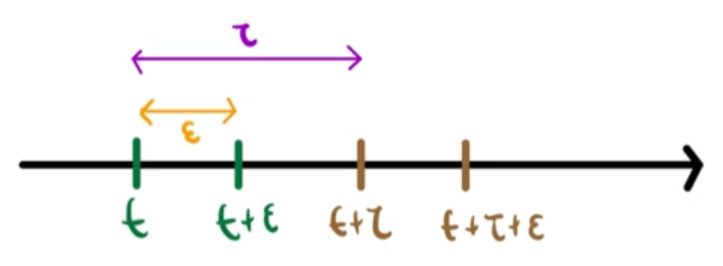 τ
ε
t t+ε t+τ t+τ+ε